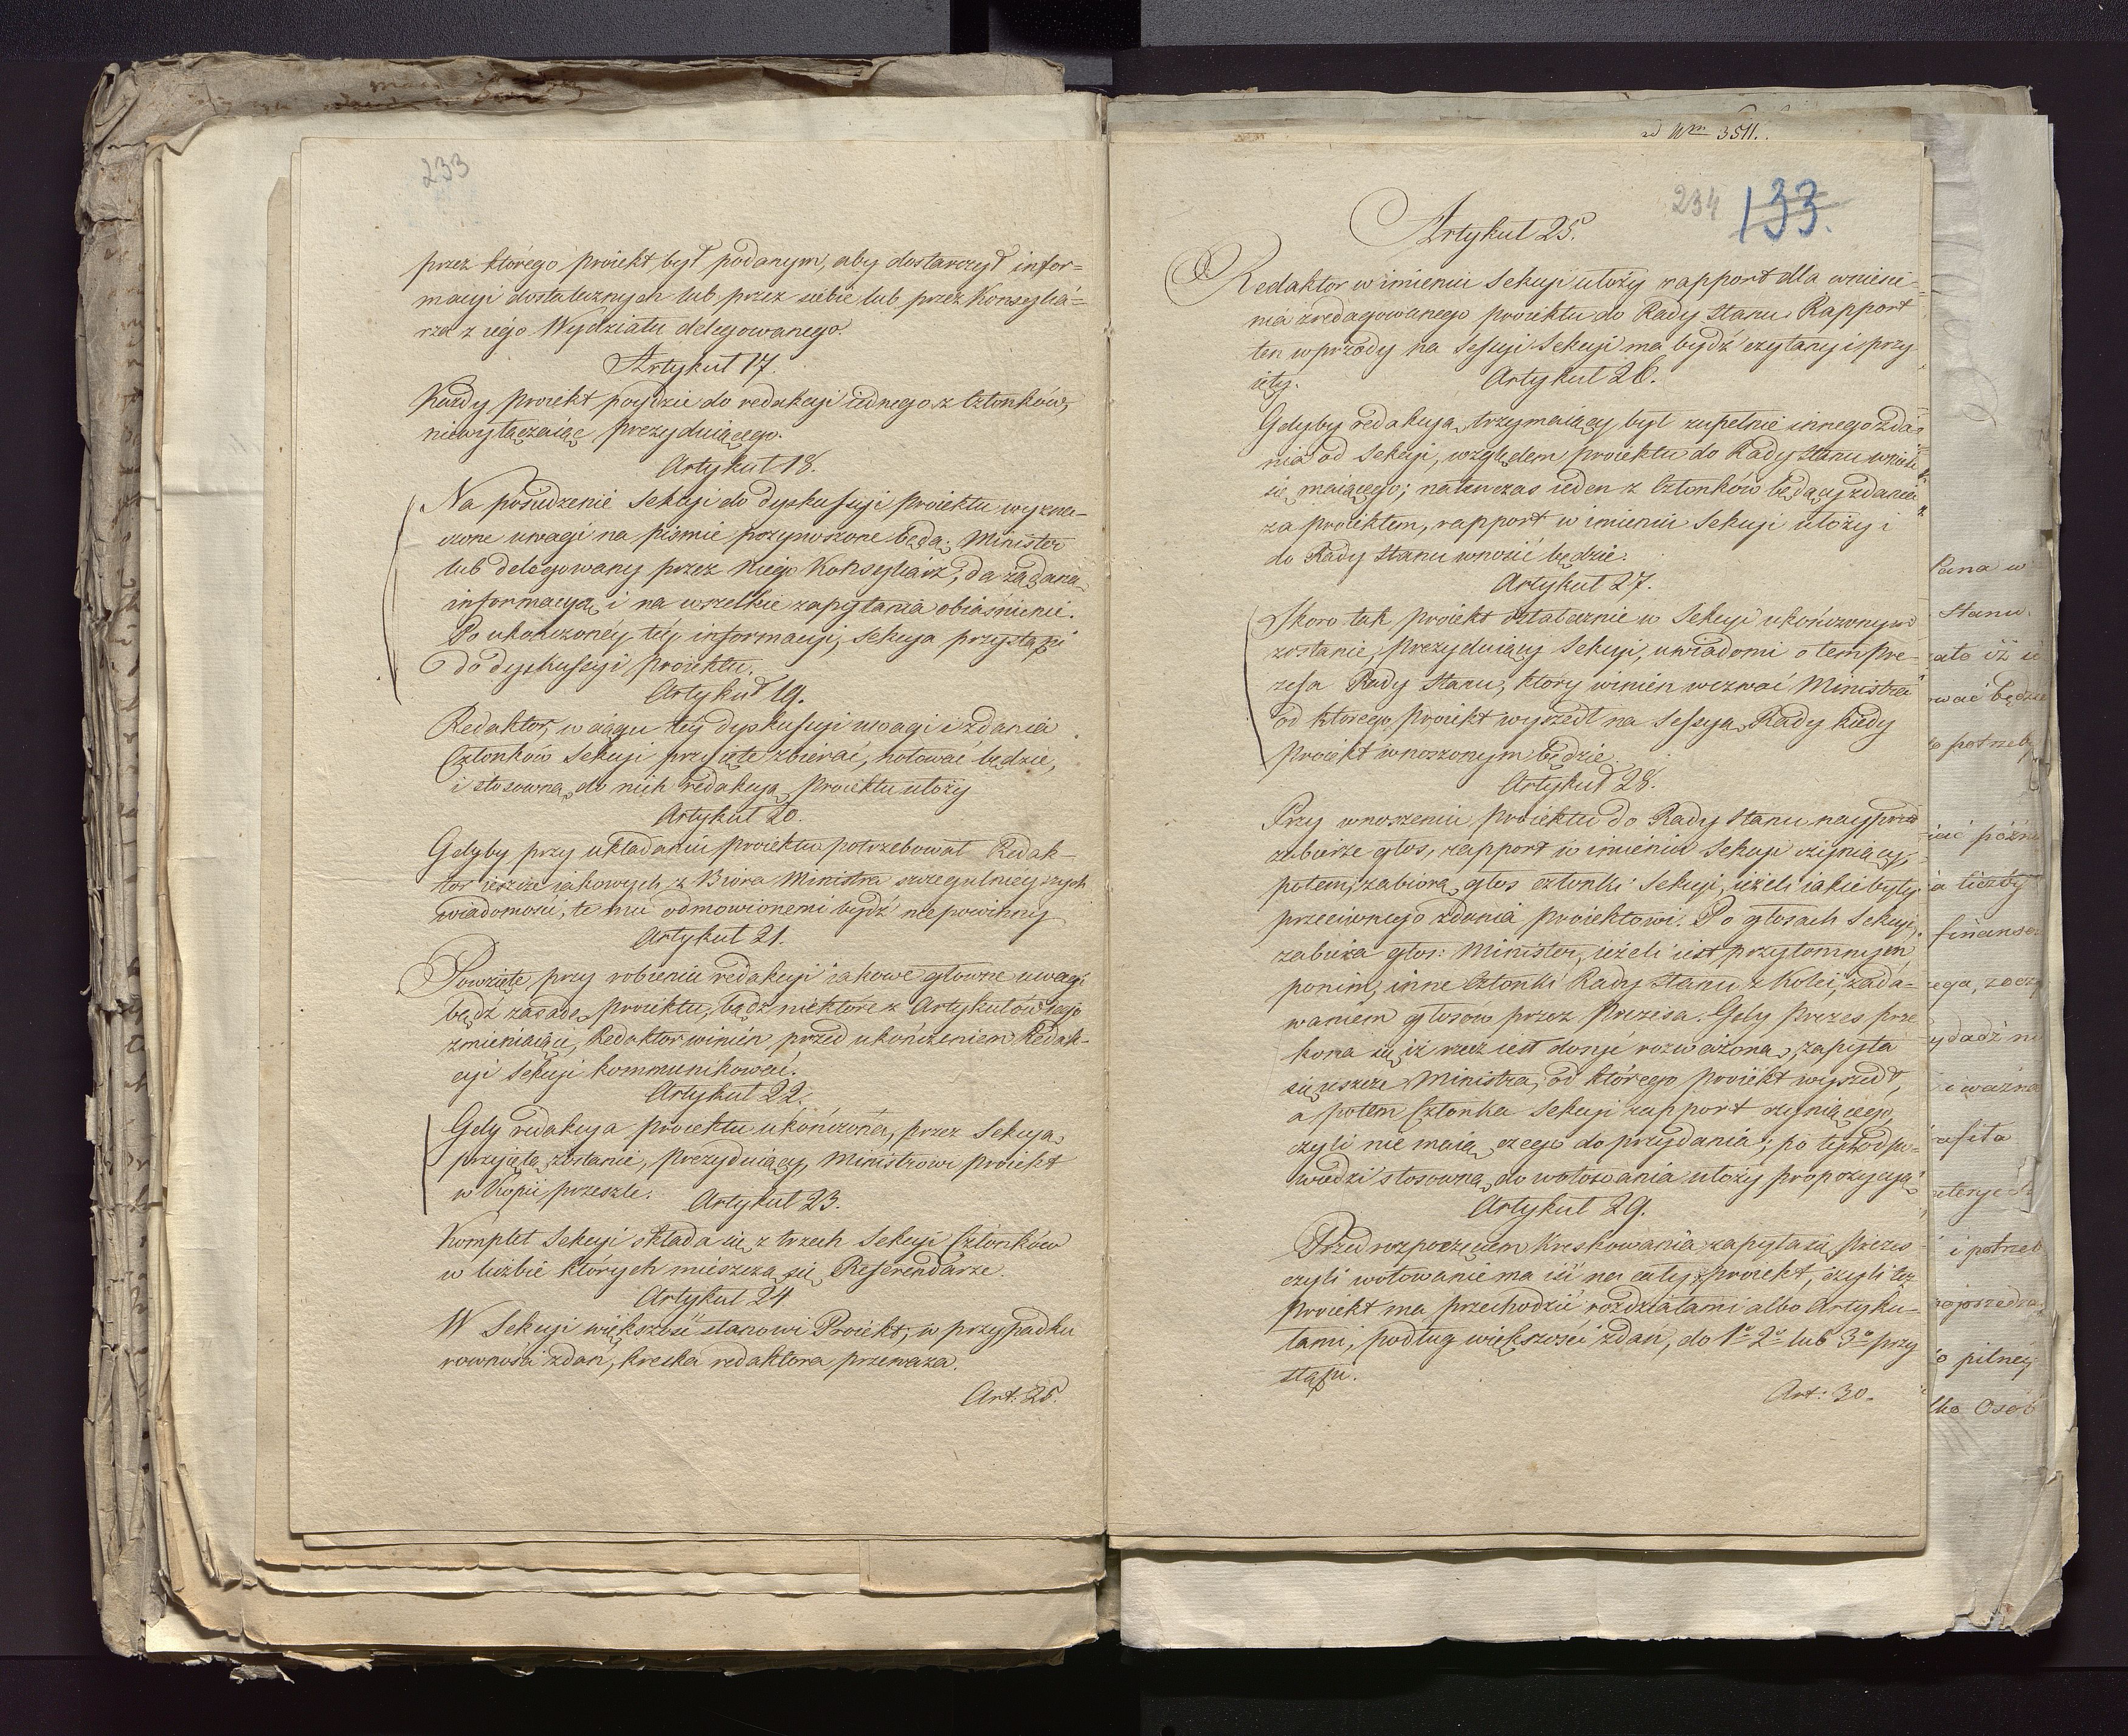 233
przez którego proiekt był podanym, aby dostarczył infor=
macyi dostatecznych lub przez siebie lub przez Konsylia=
rza z iego Wydziału delegowanego.
Artykuł 17.
Każdy proiekt poydzie do redakcyi iednego z Członków,
niewyłączaiąc prezyduiącego.
Artykuł 18.
Na posiedzenie Sekcyi do dyskussyi proiektu wyzna-
czone uwagi na pismie przynoszone będą; Minister
lub delegowany przez niego Konsyliarz, da żądaną
informacyą i na wszelkie zapytania obiaśnienie.
Po ukończoney tey informacyi, Sekcya przystąpi
do dyskussyi proiektu.
Artykuł 19.
Redaktor, w ciągu tey dyskussyi uwagi i zdania
Członków Sekcyi przyięte zbierać, notować będzie,
i stosowną do nich redakcyą proiektu ułoży
Artykuł 20.
Gdyby przy układaniu proiektu potrzebował Redak-
tor ieszcze iakowych z Biora Ministra szczegulnieyszych
wiadomości, te mu odmowionemi bydź niepowinny
Artykuł 21.
Powzięte przy robieniu redakcyi iakowe głowne uwagi
bądź zasadę proiektu, bądź niektóre z Artykułów iego
zmieniaiące, Redaktor winien przed ukończeniem Redak-
cyi Sekcyi kommunikować.
Artykuł 22.
Gdy redakcya proiektu ukończona, przez Sekcyą
przyiętą zostanie, prezyduiący Ministrowi proiekt
w Kopii przeszle.
Artykuł 23.
Komplet Sekcyi składa się z trzech Sekcyi Członków
w liczbie których mieszczą się Referendarze.
Artykuł 24
W Sekcyi większość stanowi Proiekt, w przypadku
rowności zdań, kreska redaktora przeważa.
Art: 25.
ad Nrm 3511.
234 133.
Artykuł 25.
Redaktor w imieniu Sekcyi ułoży rapport dla wniesie=
nia zredagowanego proiektu do Rady Stanu. Rapport
ten wprzody na Sessyi Sekcyi ma bydź czytany i przy
ięty.
Artykuł 26.
Gdyby redakcyą trzymaiący był zupełnie innego zda=
nia od Sekcyi, względem proiektu do Rady Stanu wnieść
się maiącego; natenczas ieden z Członków będący zdania
za proiektem, rapport w imieniu Sekcyi ułoży i
do Rady Stanu wnosić będzie.
Artykuł 27.
Skoro tak proiekt ostatecznie w Sekcyi ukończonym
zostanie, prezyduiący Sekcyi, uwiadomi o tem Pre-
zesa Rady Stanu, który winien wezwać Ministra
od którego proiekt wyszedł na Sessyą Rady kiedy
proiekt wnoszonym będzie.
Artykuł 28.
Przy wnoszeniu proiektu do Rady Stanu nayprzod
zabierze głos, rapport w imieniu Sekcyi czyniący,
potem zabiorą głos członki Sekcyi, ieżeli iakie były
przeciwnego zdania proiektowi. Po głosach Sekcyi,
zabierze głos: Minister, ieżeli iest przytomnym
po nim, inne Członki Rady Stanu z Kolei, zada-
waniem głosów przez Prezesa. Gdy Prezes prze
kona się iż rzecz iest dosyć rozważoną, zapyta
się ieszcze Ministra, od którego proiekt wyszedł,
a potem Członka Sekcyi rapport czyniącego,
czyli nie maią czego do przydania; po tych odpo-
wiedzi stosowną do wotowania ułoży propozycyą
Artykuł 29.
Przed rozpoczęciem kreskowania, zapyta się Prezes
czyli wotowanie ma iść na cały proiekt, czyli też
proiekt ma przechodzić rozdziałami albo Artyku-
łami, podług większości zdań, do 1o 2o lub 3o przy
stąpi.
Art: 30.
Stanu.
finanso
i potrzeb
pilney